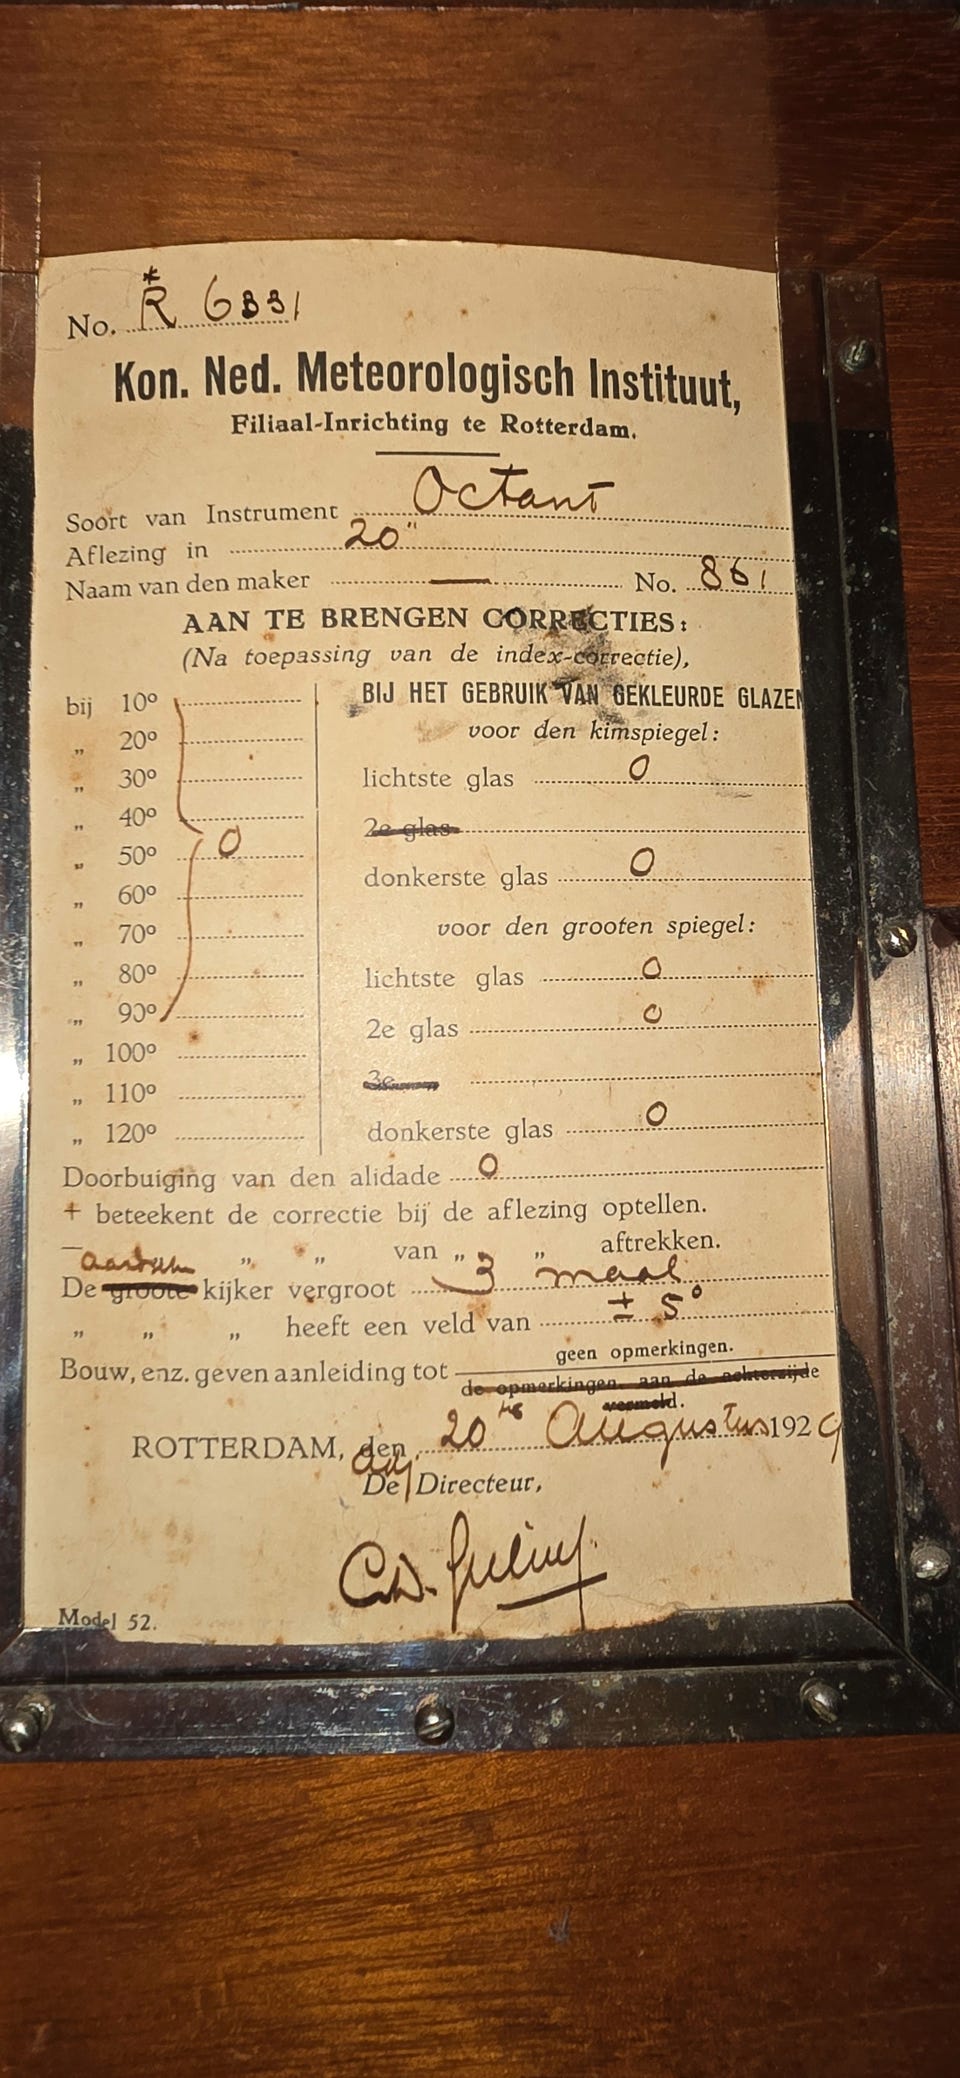 No. * R 6331
Kon. Ned. Meteorologisch Instituut,
Filiaal-Inrichting te Rotterdam.
Soort van Instrument Octant
Aflezing in 20"
Naam van den maker — No. 861
AAN TE BRENGEN CORRECTIES:
(Na toepassing van de index-correctie),
bij 10°
„ 20°
„ 30°
„ 40°
„ 50° 0
„ 60°
„ 70°
„ 80°
„ 90°
„ 100°
„ 110°
„ 120°
BIJ HET GEBRUIK VAN GEKLEURDE GLAZEN
voor den kimspiegel:
lichtste glas 0
2e glas
donkerste glas 0
voor den grooten spiegel:
lichtste glas 0
2e glas 0
3e
donkerste glas 0
Doorbuiging van den alidade 0
+ beteekent de correctie bij de aflezing optellen.
— „ „ van „ „ aftrekken.
De groote kijker vergroot 3 maal
„ „ „ heeft een veld van ± 5°
Bouw, enz. geven aanleiding tot geen opmerkingen.
de opmerkingen, aan de achterzijde
vermeld.
ROTTERDAM, den 20 Augustus 1929
De adj Directeur,
Model 52.